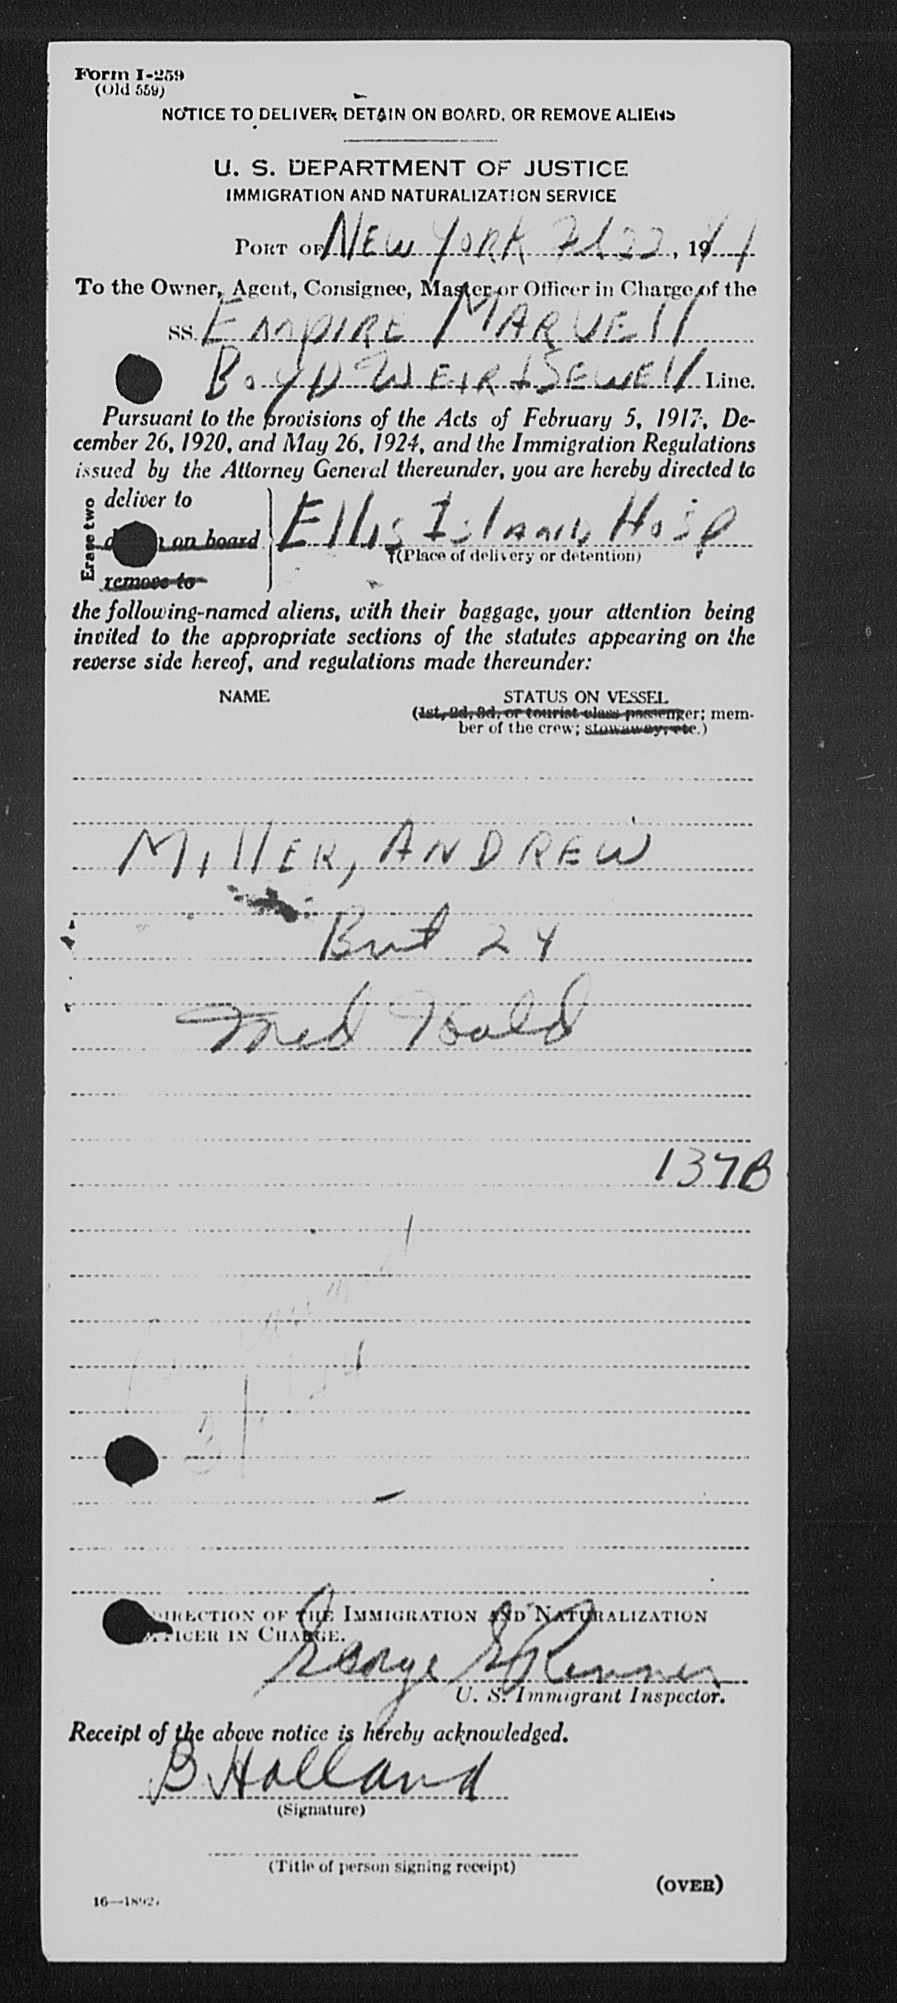 Form I-259
(Old 559)
NOTICE TO DELIVER, DETAIN ON BOARD, OR REMOVE ALIENS
U. S. DEPARTMENT OF JUSTICE
IMMIGRATION AND NATURALIZATION SERVICE
PORT OF NEW YORK Feb 22, 1941
To the Owner, Agent, Consignee, Master or Officer in Charge of the
SS. EMPIRE MARVEll
BOYD WEIR + SEWEll Line.
Pursuant to the provisions of the Acts of February 5, 1917, De-
cember 26, 1920, and May 26, 1924, and the Immigration Regulations
issued by the Attorney General thereunder, you are hereby directed to
Erase two
deliver to
on board
remove to
Ellis Island Hosp
(Place of delivery or detention)
the following-named aliens, with their baggage, your attention being
invited to the appropriate sections of the statutes appearing on the
reverse side hereof, and regulations made thereunder:
NAME STATUS ON VESSEL
(1st, 2d, 3d, or tourist class passenger; mem-
ber of the crew; stowaway, etc.)
MIllER, ANDREW
Brit 24
Med Hold
137B
DIRECTION OF THE IMMIGRATION AND NATURALIZATION
OFFICER IN CHARGE.
George
U. S. Immigrant Inspector.
Receipt of the above notice is hereby acknowledged.
B Holland
(Signature)
(Title of person signing receipt)
(OVER)